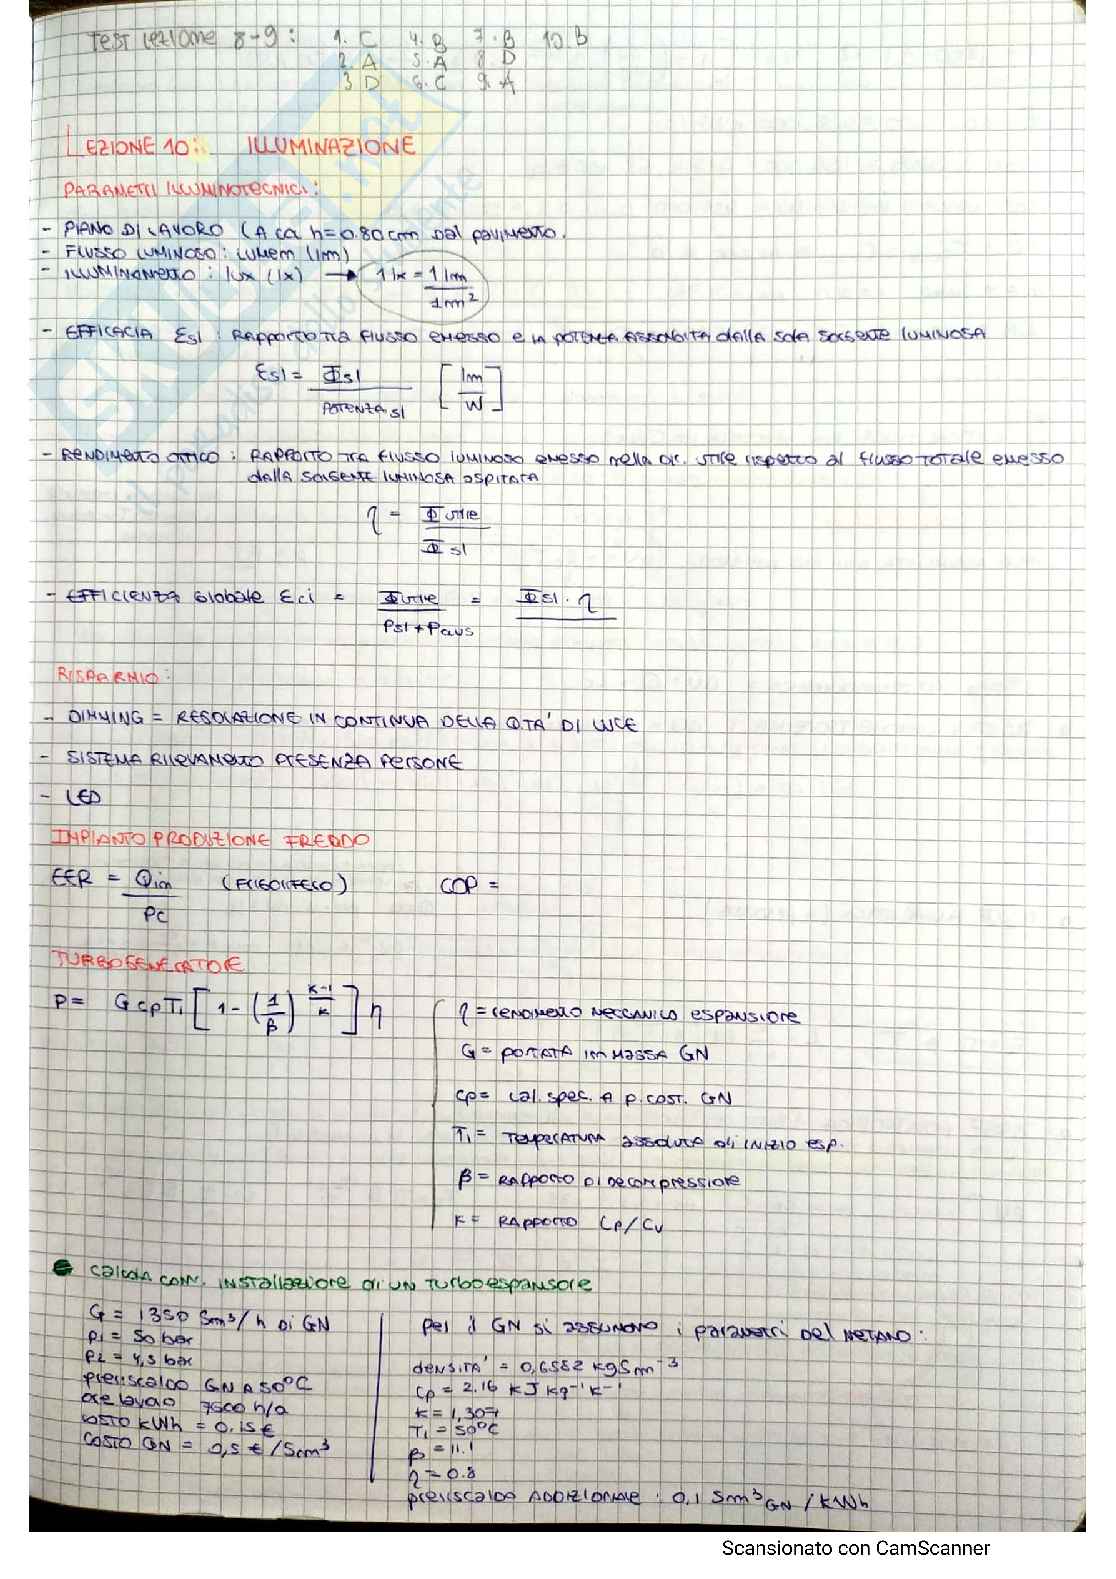 TEST LEZIONE 8-9: 1. C 4. B 7. B 10 B
2. A 5. A 8. D
3 D 6. C 9. A
LEZIONE 10: ILLUMINAZIONE
PARAMETRI ILLUMINOTECNICI:
- PIANO DI LAVORO (A ca h=0.80cm dal pavimento.
- FLUSSO LUMINOSO: lumen (lm)
- ILLUMINAMENTO: lux (lx) → 1 lx = 1 lm / 1 m²
- EFFICACIA εsl: RAPPORTO TRA flusso emesso e la POTENZA ASSORBITA dalla sola sorgente luminosa
εsl = Φsl / POTENZA sl [lm / W]
- RENDIMENTO OTTICO: RAPPORTO TRA flusso luminoso emesso nella dir. utile rispetto al flusso totale emesso
dalla SORGENTE luminosa ospitata
η = Φutile / Φsl
- EFFICIENZA Globale εci = Φutile / Psl + Paus = Φsl · η
RISPARMIO:
- DIMMING = REGOLAZIONE IN CONTINUA DELLA QTA' DI LUCE
- SISTEMA RILEVAMENTO PRESENZA PERSONE
- LED
IMPIANTO PRODUZIONE FREDDO
EER = Qin / Pc (FRIGORIFERO) COP =
TURBOGENERATORE
P = G cp T₁ [1 - (1/β)^(k-1/k)] η
η = rendimento meccanico espansore
G = PORTATA in massa GN
Cp = cal. spec. A p. cost. GN
T₁ = TEMPERATURA assoluta di INIZIO esp.
β = RAPPORTO DI decompressione
K = RAPPORTO Cp/Cv
Calcola conv. installazione di un Turboespansore
G = 1350 Sm³/h di GN
P1 = 50 bar
P2 = 4,5 bar
preriscaldo GN A 50°C
ore lavoro 7500 h/a
costo kWh = 0.15 €
COSTO GN = 0,5 €/Scm³
per il GN si assumono i parametri del METANO:
densità' = 0,6582 kg Sm⁻³
Cp = 2.16 kJ kg⁻¹ K⁻¹
K = 1,307
T₁ = 50°C
β = 11.1
η = 0.8
preriscaldo ADDIZIONALE: 0,1 Sm³ GN / kWh
Scansionato con CamScanner